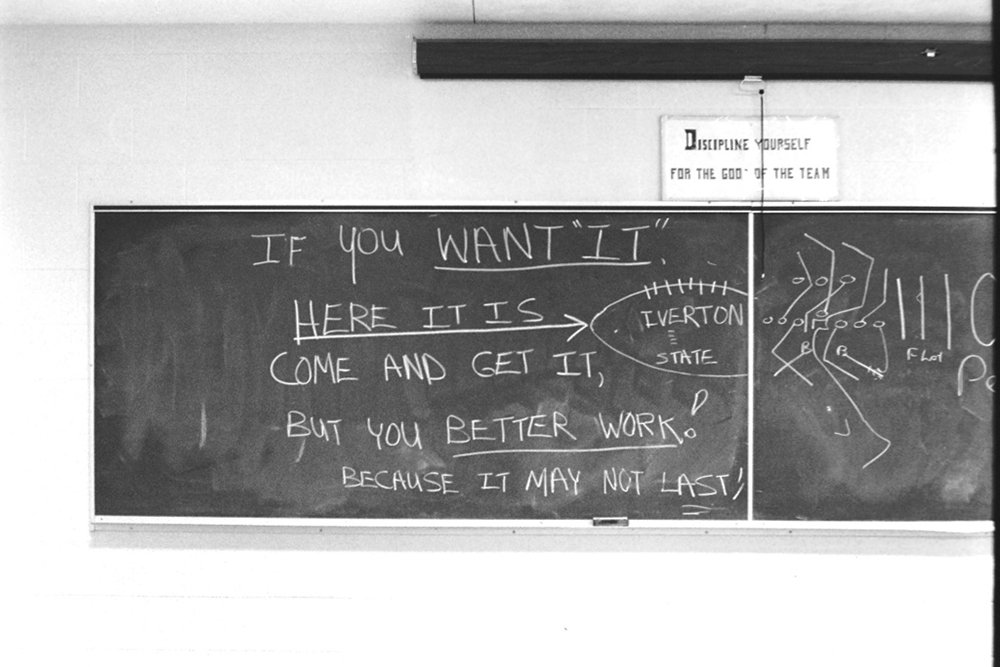 DISCIPLINE YOURSELF
FOR THE GOOD OF THE TEAM
IF YOU WANT "IT".
HERE IT IS
IVERTON
STATE
COME AND GET IT,
BUT YOU BETTER WORK!
BECAUSE IT MAY NOT LAST!
B
B